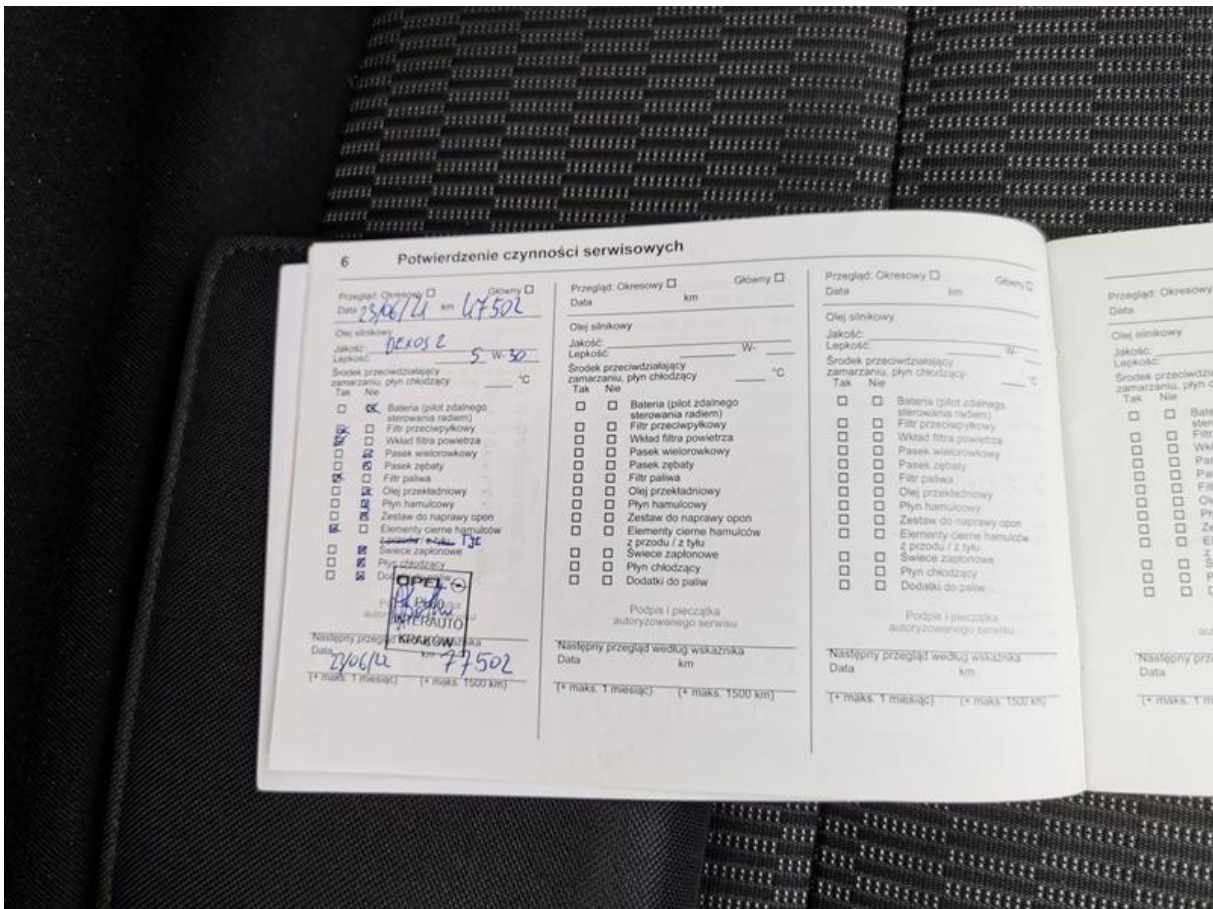 6 Potwierdzenie czynności serwisowych
Przegląd: Okresowy Główny
Data 23/06/21 km 47502
Olej silnikowy
Jakość: DEXOS 2
Lepkość: 5 W- 30
Środek przeciwdziałający
zamarzaniu, płyn chłodzący °C
Tak Nie
Bateria (pilot zdalnego
sterowania radiem)
Filtr przeciwpyłkowy
Wkład filtra powietrza
Pasek wielorowkowy
Pasek zębaty
Filtr paliwa
Olej przekładniowy
Płyn hamulcowy
Zestaw do naprawy opon
Elementy cierne hamulców
z przodu / z tyłu
Świece zapłonowe
Płyn chłodzący
OPEL
INTERAUTO
KRAKÓW
Następny przegląd według wskaźnika
Data 23/06/22 km 77502
(+ maks. 1 miesiąc) (+ maks. 1500 km)
Przegląd: Okresowy Główny
Data km
Olej silnikowy
Jakość:
Lepkość: W-
Środek przeciwdziałający
zamarzaniu, płyn chłodzący °C
Tak Nie
Bateria (pilot zdalnego
sterowania radiem)
Filtr przeciwpyłkowy
Wkład filtra powietrza
Pasek wielorowkowy
Pasek zębaty
Filtr paliwa
Olej przekładniowy
Płyn hamulcowy
Zestaw do naprawy opon
Elementy cierne hamulców
z przodu / z tyłu
Świece zapłonowe
Płyn chłodzący
Dodatki do paliw
Podpis i pieczątka
autoryzowanego serwisu
Następny przegląd według wskaźnika
Data km
(+ maks. 1 miesiąc) (+ maks. 1500 km)
Przegląd: Okresowy Główny
Data km
Olej silnikowy
Jakość:
Lepkość: W-
Środek przeciwdziałający
zamarzaniu, płyn chłodzący °C
Tak Nie
Bateria (pilot zdalnego
sterowania radiem)
Filtr przeciwpyłkowy
Wkład filtra powietrza
Pasek wielorowkowy
Pasek zębaty
Filtr paliwa
Olej przekładniowy
Płyn hamulcowy
Zestaw do naprawy opon
Elementy cierne hamulców
z przodu / z tyłu
Świece zapłonowe
Płyn chłodzący
Dodatki do paliw
Podpis i pieczątka
autoryzowanego serwisu
Następny przegląd według wskaźnika
Data km
(+ maks. 1 miesiąc) (+ maks. 1500 km)
Przegląd: Okresowy
Data
Olej silnikowy
Jakość:
Lepkość:
Środek
zamarzaniu, płyn
Tak Nie
Następny
Data
(+ maks. 1